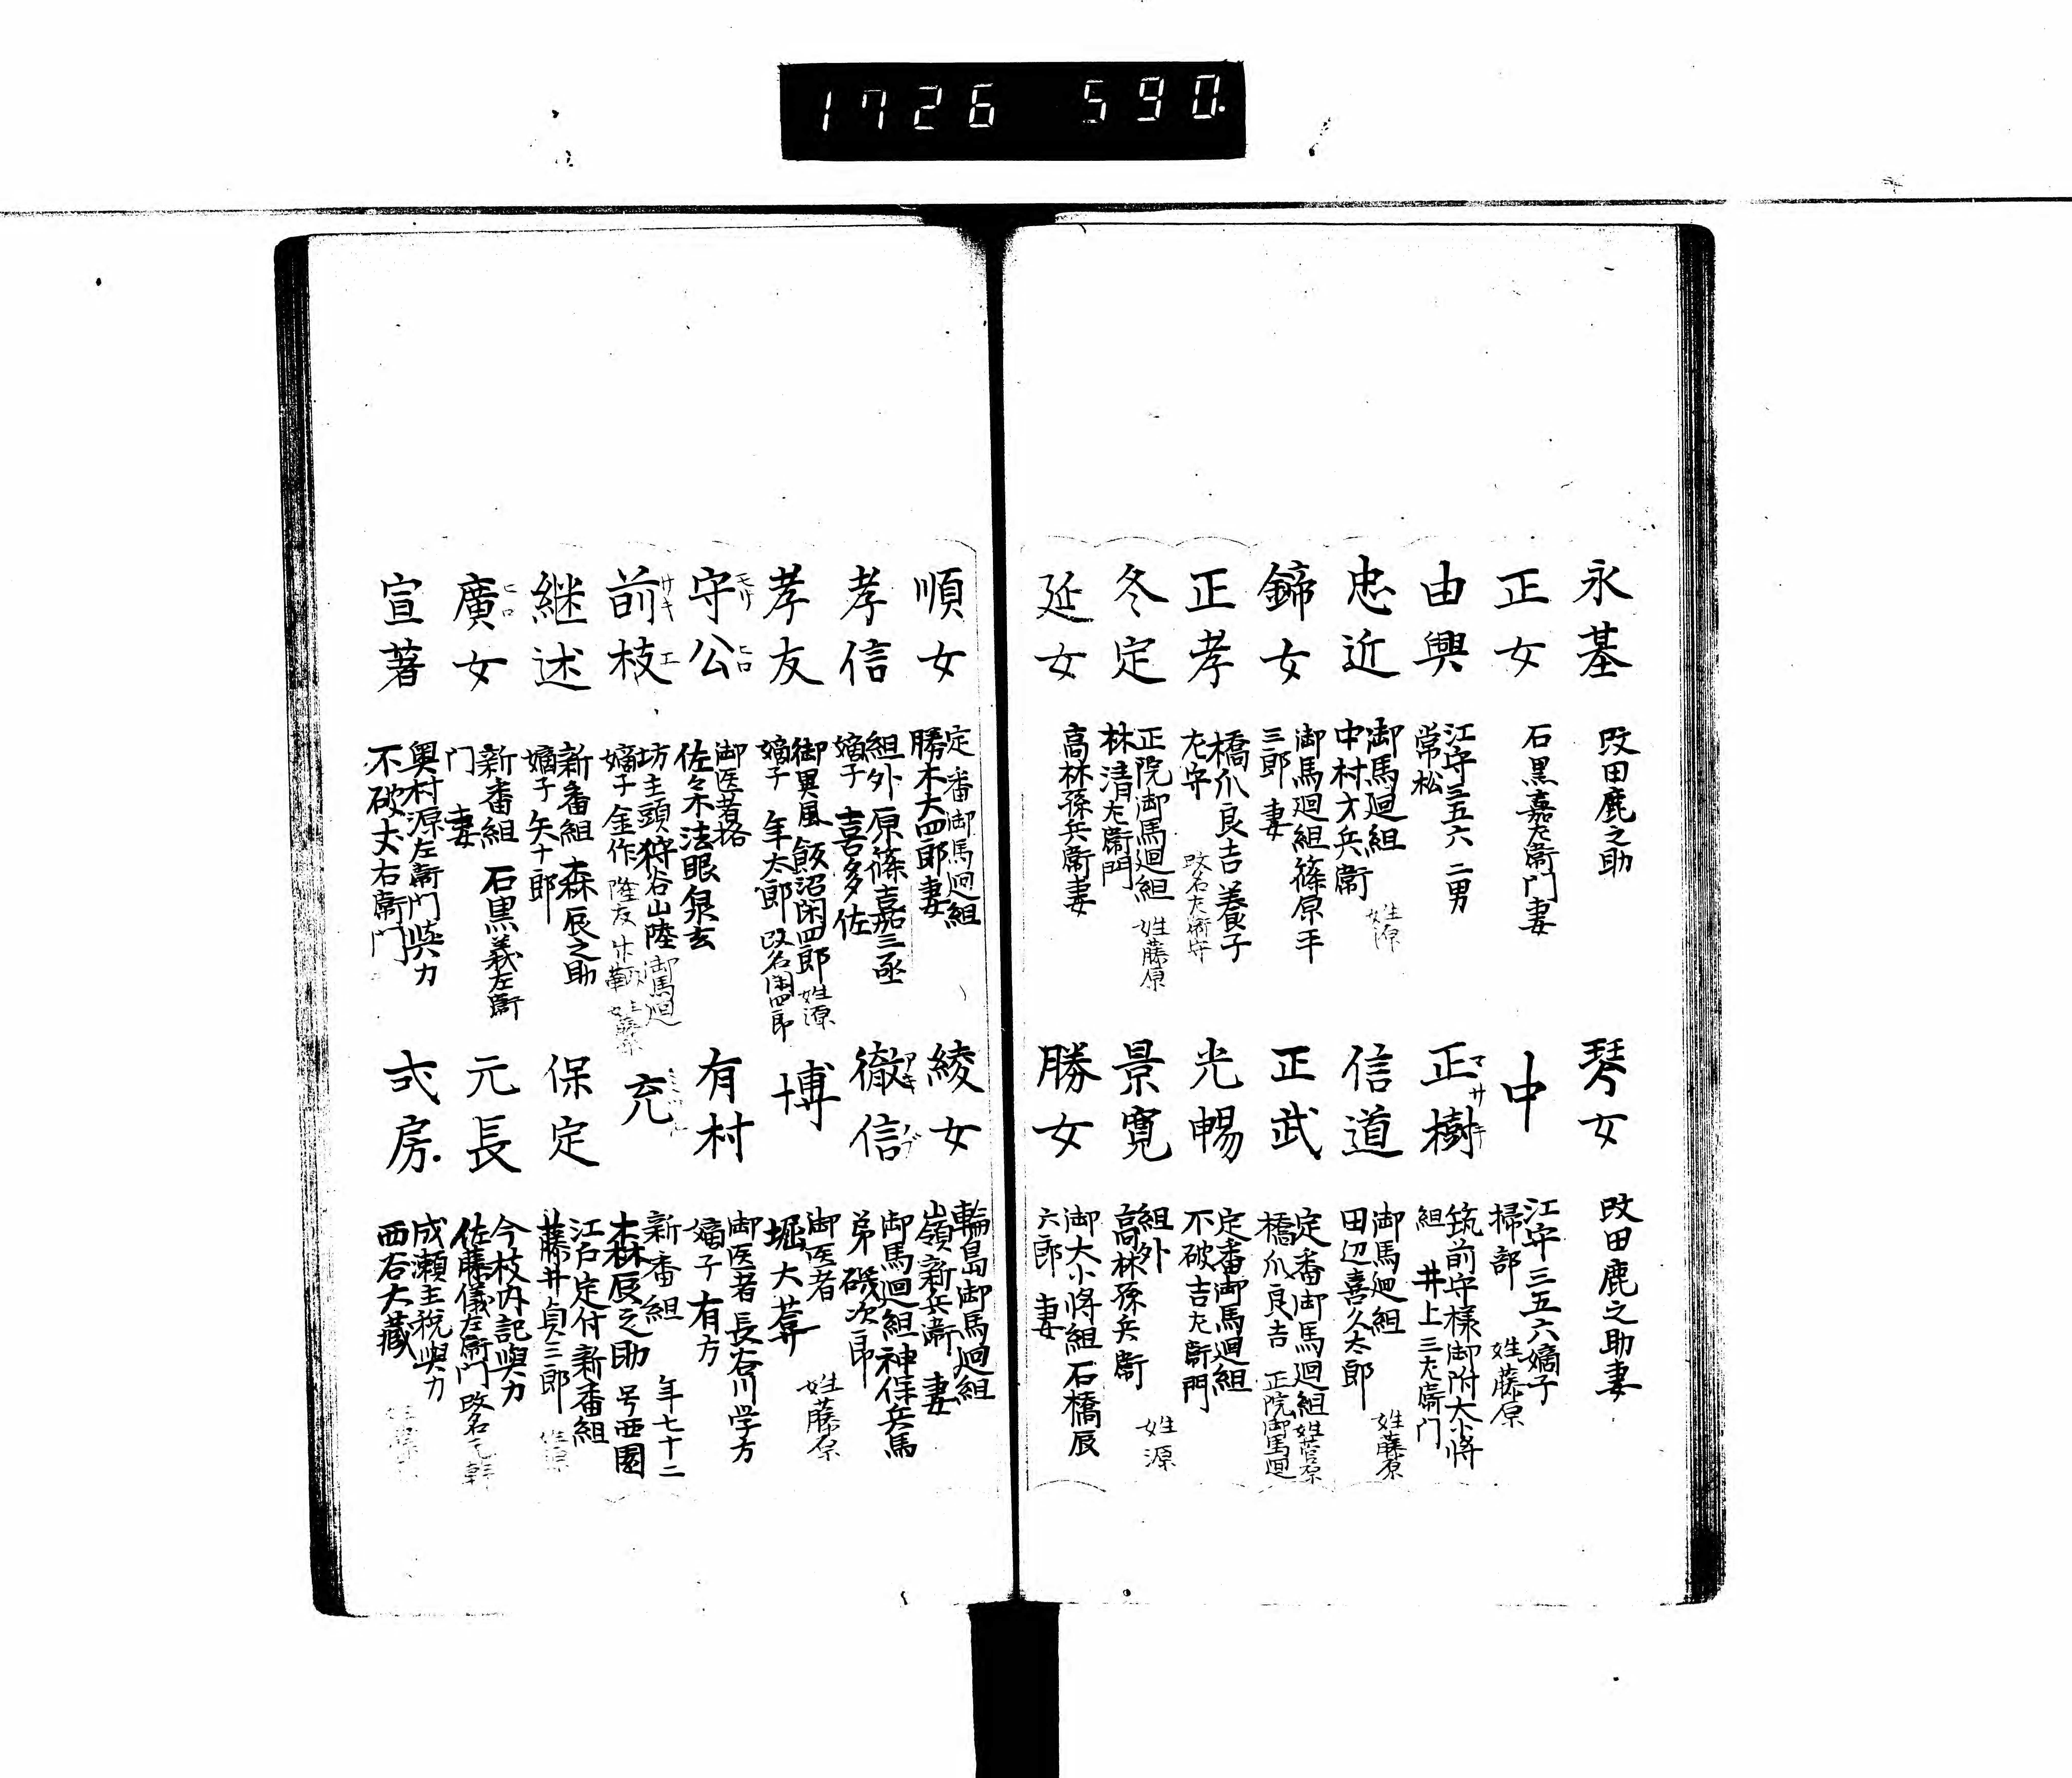 1726 590.
永基
改田鹿之助
正女
石黒嘉左衛門妻
由興
江守三五六 二男
常松
忠近
御馬廻組
中村才兵衛
姓源
鍗女
御馬廻組篠原平
三郎 妻
正孝
橋爪良吉養子
左守
改名左衛守
冬定
正院御馬廻組
姓藤原
林清左衛門
延女
高林孫兵衛妻
琴女
改田鹿之助妻
中
江守三五六嫡子
掃部
姓藤原
正樹
マサキ
筑前守様御附大小将
組 井上三左衛門
信道
御馬廻組
田辺喜久太郎
姓藤原
正武
定番御馬廻組
姓菅原
橋爪良吉
正院御馬廻
光暢
定番御馬廻組
不破吉左衛門
景寛
組外
高林孫兵衛
姓源
勝女
御大小将組 石橋辰
六郎 妻
順女
定番御馬廻組
勝木大四郎妻
孝信
組外 原篠喜嘉三亟
嫡子 喜多佐
孝友
御異風 飯沼閑四郎
姓源
嫡子 年太郎
改名閑四郎
守公
モリ ヒロ
御医者格
佐々木法眼泉玄
前枝
サキ エ
坊主頭狩谷山陸
御馬廻
嫡子 金作
継述
新番組 森辰之助
嫡子 矢十郎
廣女
ヒロ
新番組 石黒義左衛
門 妻
宣著
奥村源左衛門與力
不破丈右衛門
綾女
輪島御馬廻組
嶺新兵衛 妻
徹信
ノブ
御馬廻組神保兵馬
弟 磯次郎
博
御医者
堀大葊
姓藤原
有村
御医者 長谷川学方
嫡子 有方
充
新番組 年七十二
森辰之助 号西園
保定
江戸定付新番組
藤井貞三郎
元長
今枝内記與力
佐藤儀左衛門
改名
弍房
成瀬主税與力
西右大蔵